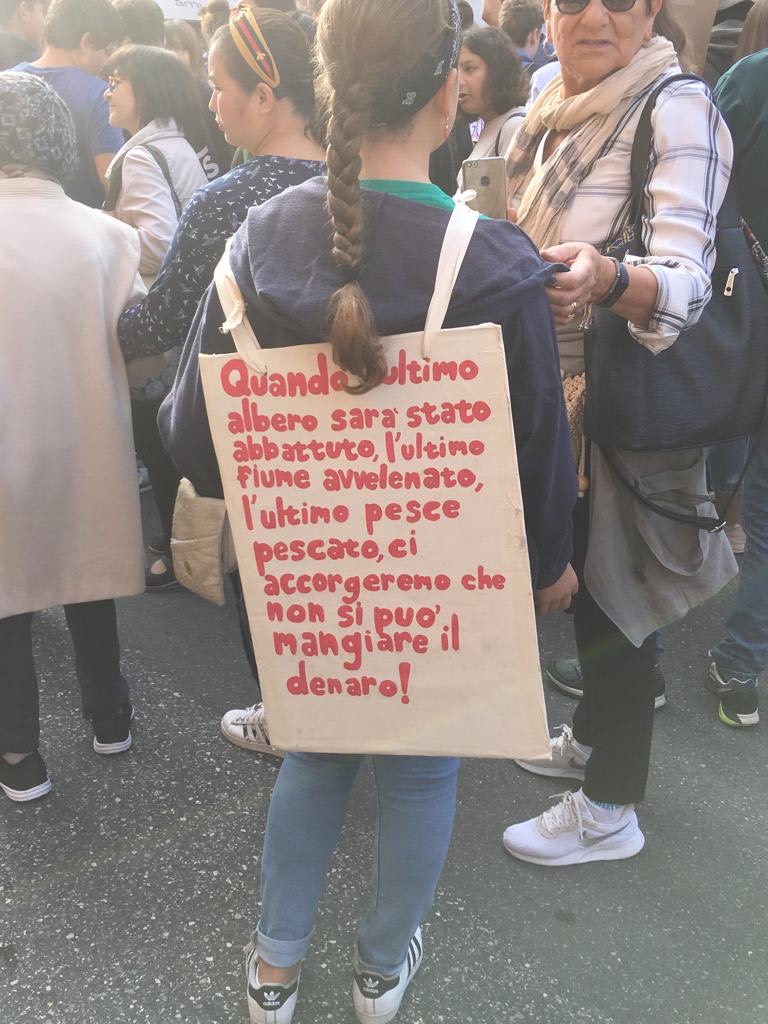 Quando l'ultimo
albero sara' stato
abbattuto, l'ultimo
fiume avvelenato,
l'ultimo pesce
pescato, ci
accorgeremo che
non si puo'
mangiare il
denaro!
adidas
adidas